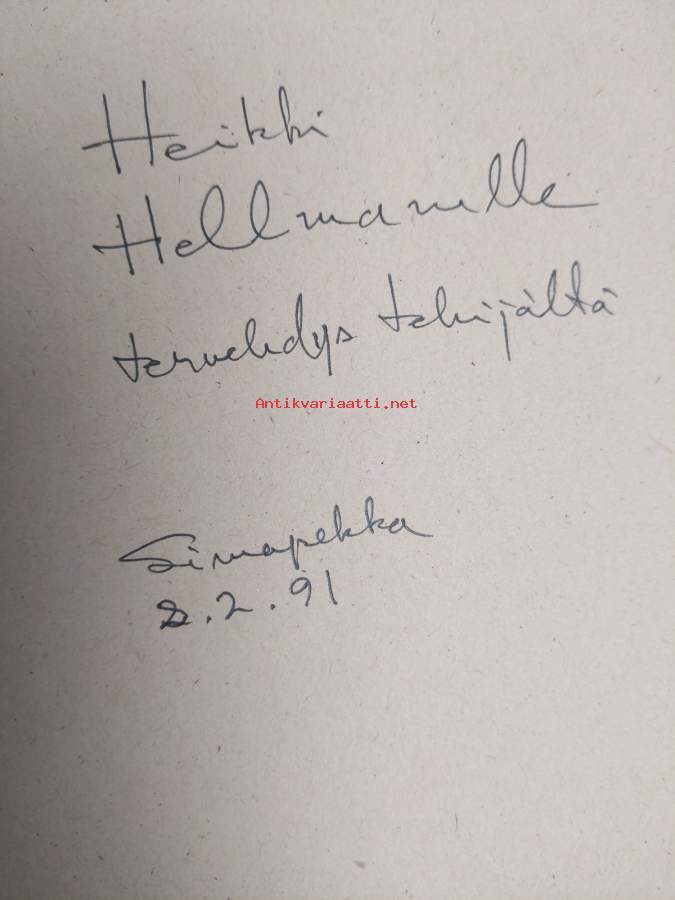 Heikki
Hellmanille
tervehdys tekijältä
Antikvariaatti.net
Simapekka
2.91